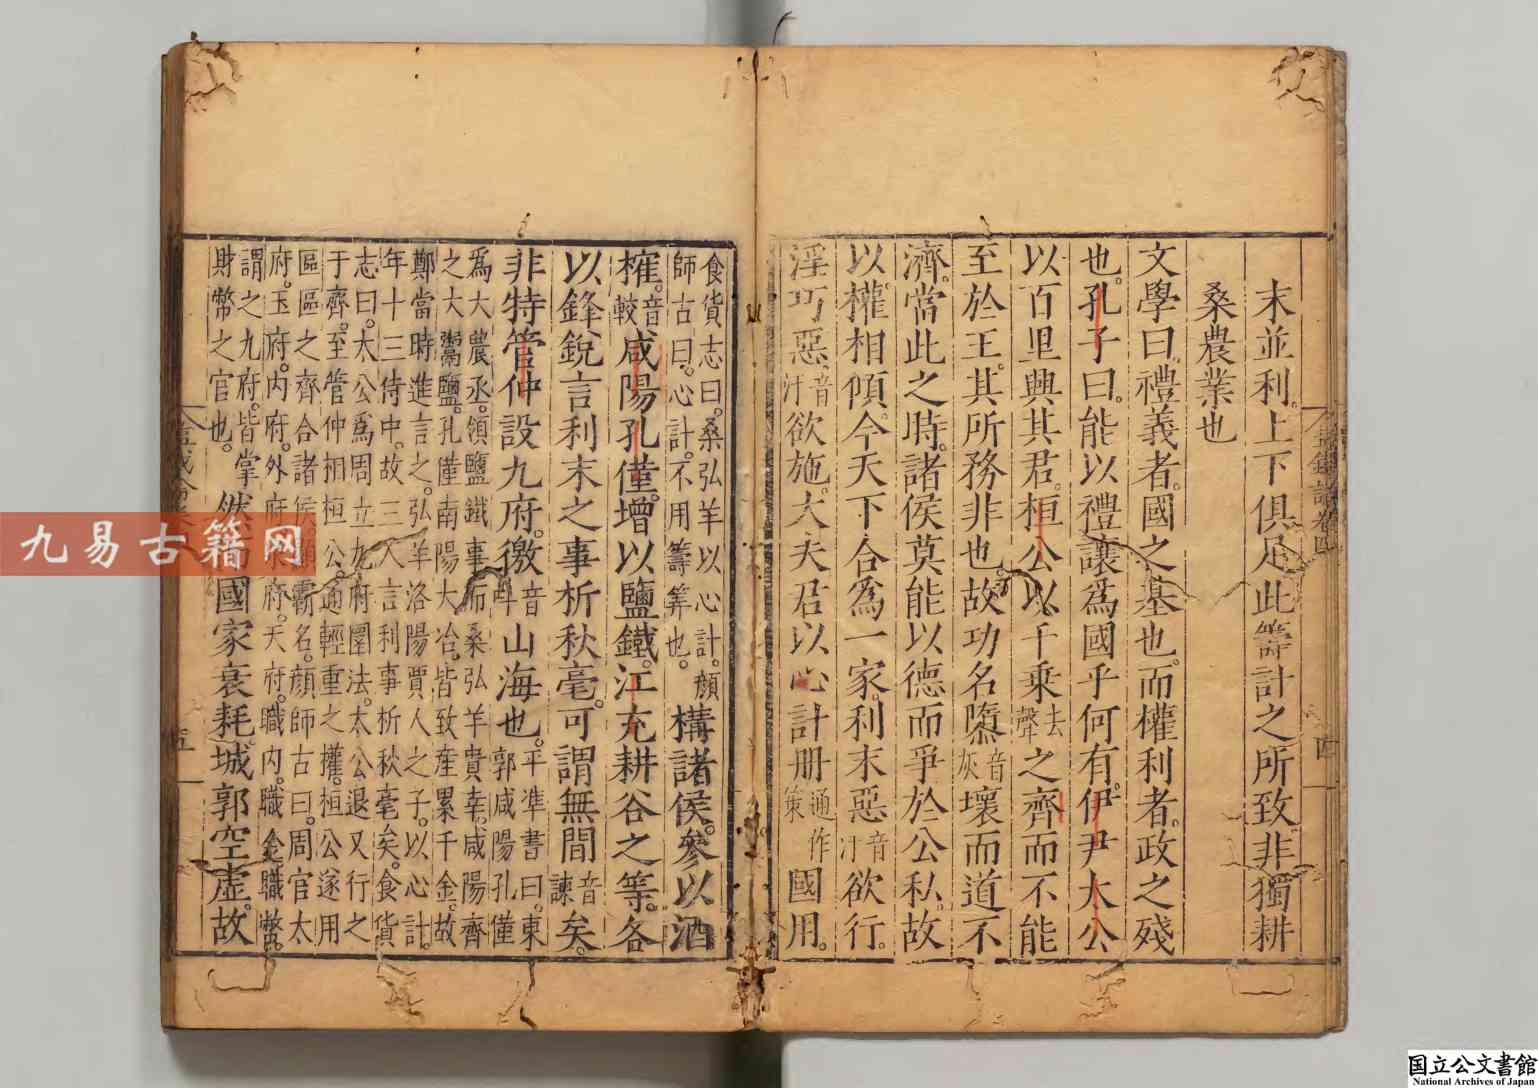 末並利。上下俱足。此籌計之所致。非獨耕
桑農業也
文學曰。禮義者。國之基也。而權利者。政之殘
也。孔子曰。能以禮讓爲國乎何有。伊尹太公
以百里興其君。桓公以千乗去聲之齊而不能
至於王。其所務非也。故功名隳音灰壞而道不
濟。當此之時。諸侯莫能以德而爭於公私。故
以權相傾。今天下合爲一家。利末惡音汙欲行。
淫巧惡音汙欲施。大夫君以心計册通作策國用。
食貨志曰。桑弘羊以心計。顔
師古曰。心計。不用籌筭也。構諸侯。參以酒
榷。音較咸陽孔僅。增以鹽鐵。江充耕谷之等。各
以鋒銳言利末之事析秋毫。可謂無間音諫矣。
非特管仲設九府。徼音斗山海也。平準書曰。東郭咸陽孔僅
爲大農丞。領鹽鐵事。而桑弘羊貴幸。咸陽齊
之大鬻鹽。孔僅南陽大冶。皆致産累千金。故
鄭當時進言之。弘羊洛陽賈人之子。以心計。
年十三侍中。故三人言利事析秋毫矣。食貨
志曰。太公爲周立九府圜法。太公退又行之
于齊。至管仲相桓公。通輕重之權。桓公遂用
區區之齊合諸侯。顯霸名。顔師古曰。周官太
府。玉府。内府。外府。天府。職内。職金。職幣。
謂之九府。皆掌
財幣之官也。然而國家衰耗。城郭空虛。故
鹽鐵論卷四
四
五
九易古籍网
国立公文書館
National Archives of Japan